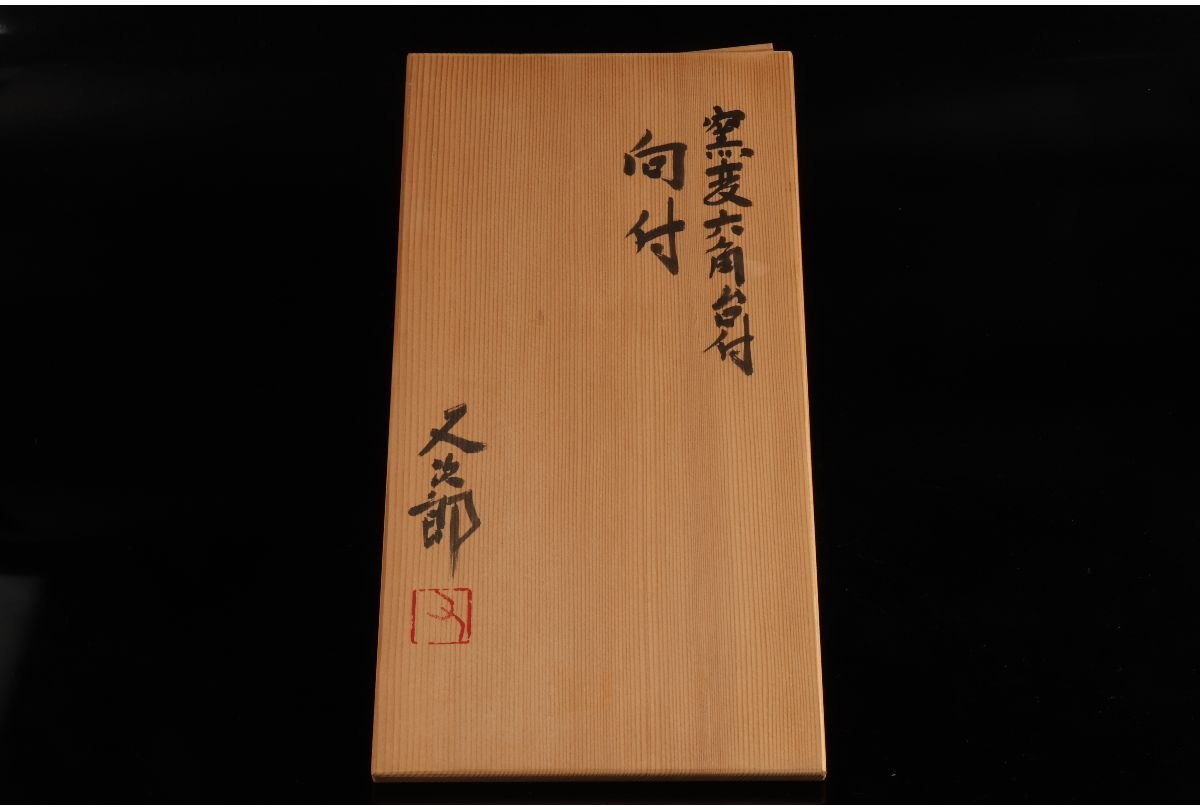 窯変六角台付
向付
又次郎